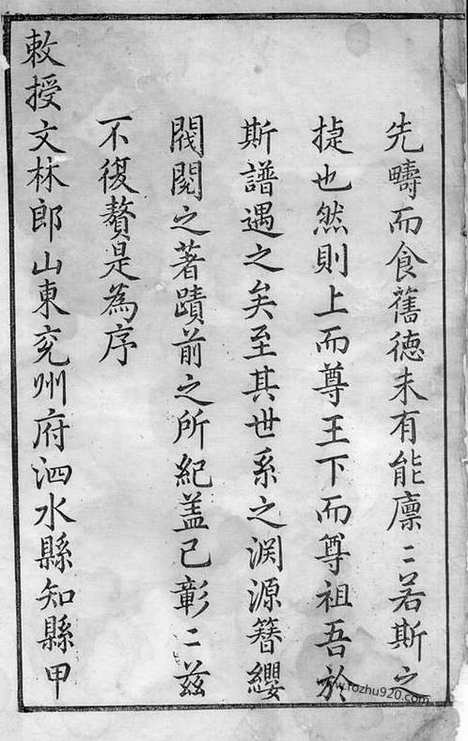 先疇而食舊德未有能廩〻若斯之
捷也然則上而尊王下而尊祖吾於
斯譜遇之矣至其世系之淵源簪纓
閥閱之著蹟前之所紀蓋已彰〻茲
不復贅是為序
敕授文林郎山東兗州府泗水縣知縣甲
www.rozhu920.com